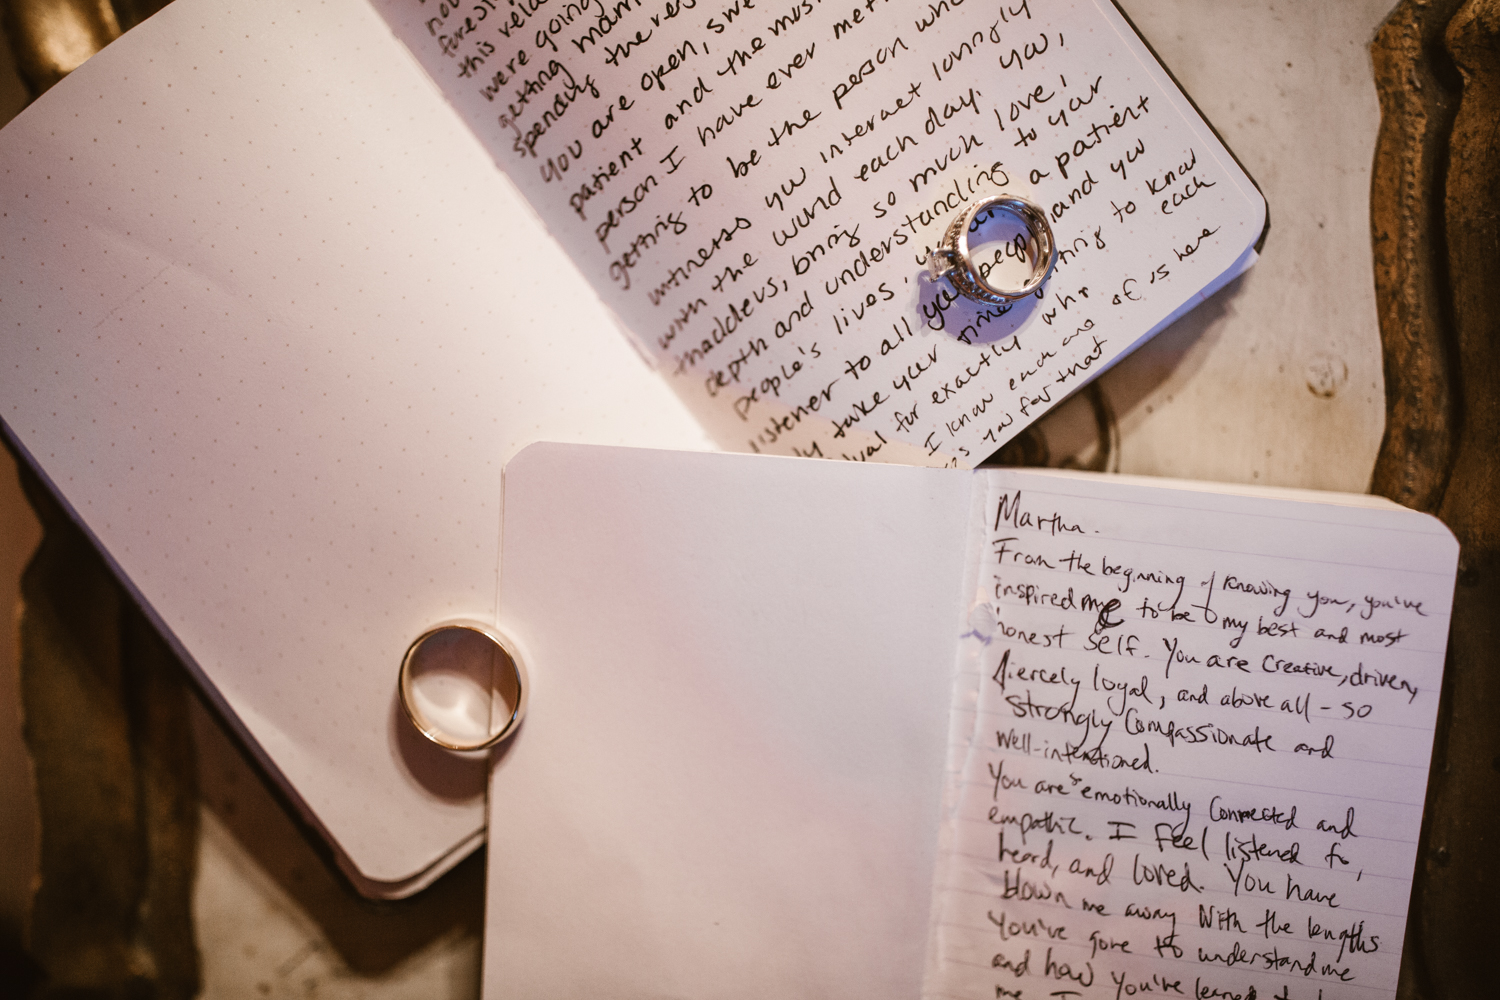 this rela
were going
getting marr
spending the res
you are open, swe
patient and the most
person I have ever met
getting to be the person who
witness you interact lovingly
with the world each day. You,
thaddeus, bring so much love,
depth and understanding to your
people's lives, a patient
listener to all your people and you
take your time getting to know
for exactly who each
I know each one of is here
you for that
Martha.
From the beginning of knowing you, you've
inspired me to be my best and most
honest self. You are creative, driven,
fiercely loyal, and above all - so
strongly compassionate and
well-intentioned.
You are so emotionally connected and
empathic. I feel listened to,
heard, and loved. You have
blown me away with the lengths
you've gone to to understand me
and how you've learned to
me. I